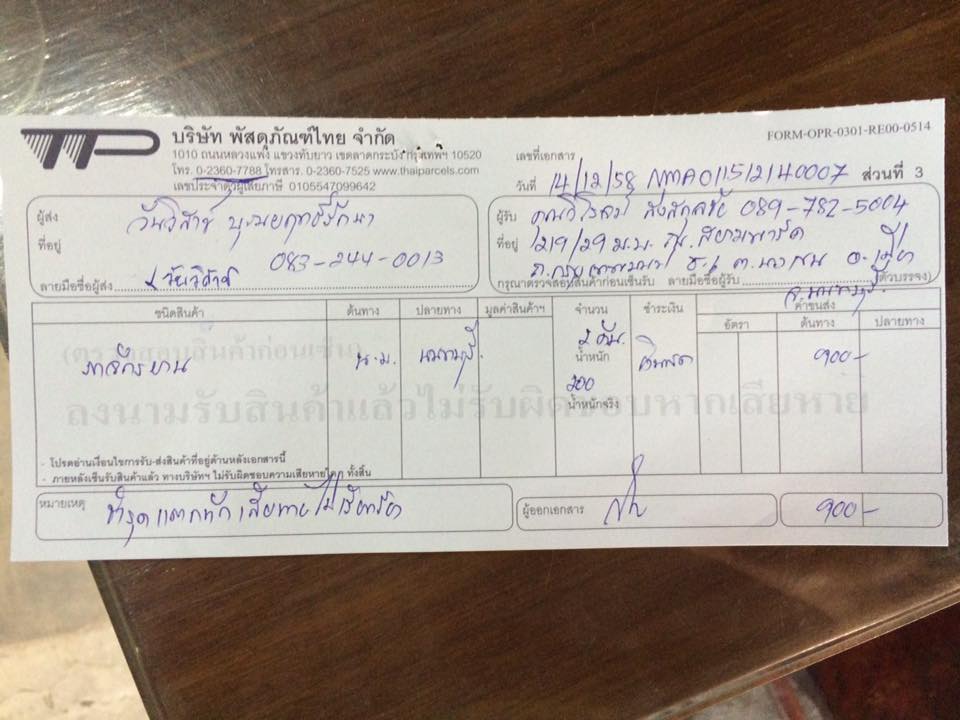 บริษัท พัสดุภัณฑ์ไทย จำกัด
1010 ถนนหลวงแพ่ง แขวงทับยาว เขตลาดกระบัง กรุงเทพฯ 10520
โทร. 0-2360-7788 โทรสาร. 0-2360-7525 www.thaiparcels.com
เลขประจำตัวผู้เสียภาษี 0105547099642
FORM-OPR-0301-RE00-0514
เลขที่เอกสาร
วันที่ 14/12/58 NMA011512140007 ส่วนที่ 3
ผู้ส่ง วันวิสาข์
ที่อยู่
083-244-0013
ลายมือชื่อผู้ส่ง วันวิสาข์
ผู้รับ 089-782-5004
ที่อยู่ 1219/29
กรุณาตรวจสอบสินค้าก่อนเซ็นรับ ลายมือชื่อผู้รับ (ตัวบรรจง)
ชนิดสินค้า ต้นทาง ปลายทาง มูลค่าสินค้าฯ จำนวน ชำระเงิน ค่าขนส่ง
อัตรา ต้นทาง ปลายทาง
(ตรวจสอบสินค้าก่อนเซ็น)
น.ม. นนทบุรี 2 คัน 900-
น้ำหนัก
200
น้ำหนักจริง
ลงนามรับสินค้าแล้วไม่รับผิดชอบหากเสียหาย
- โปรดอ่านเงื่อนไขการรับ-ส่งสินค้าที่อยู่ด้านหลังเอกสารนี้
- ภายหลังเซ็นรับสินค้าแล้ว ทางบริษัทฯ ไม่รับผิดชอบความเสียหายใดๆ ทั้งสิ้น
หมายเหตุ ชำรุด แตกหัก เสียหาย ไม่
ผู้ออกเอกสาร 900-